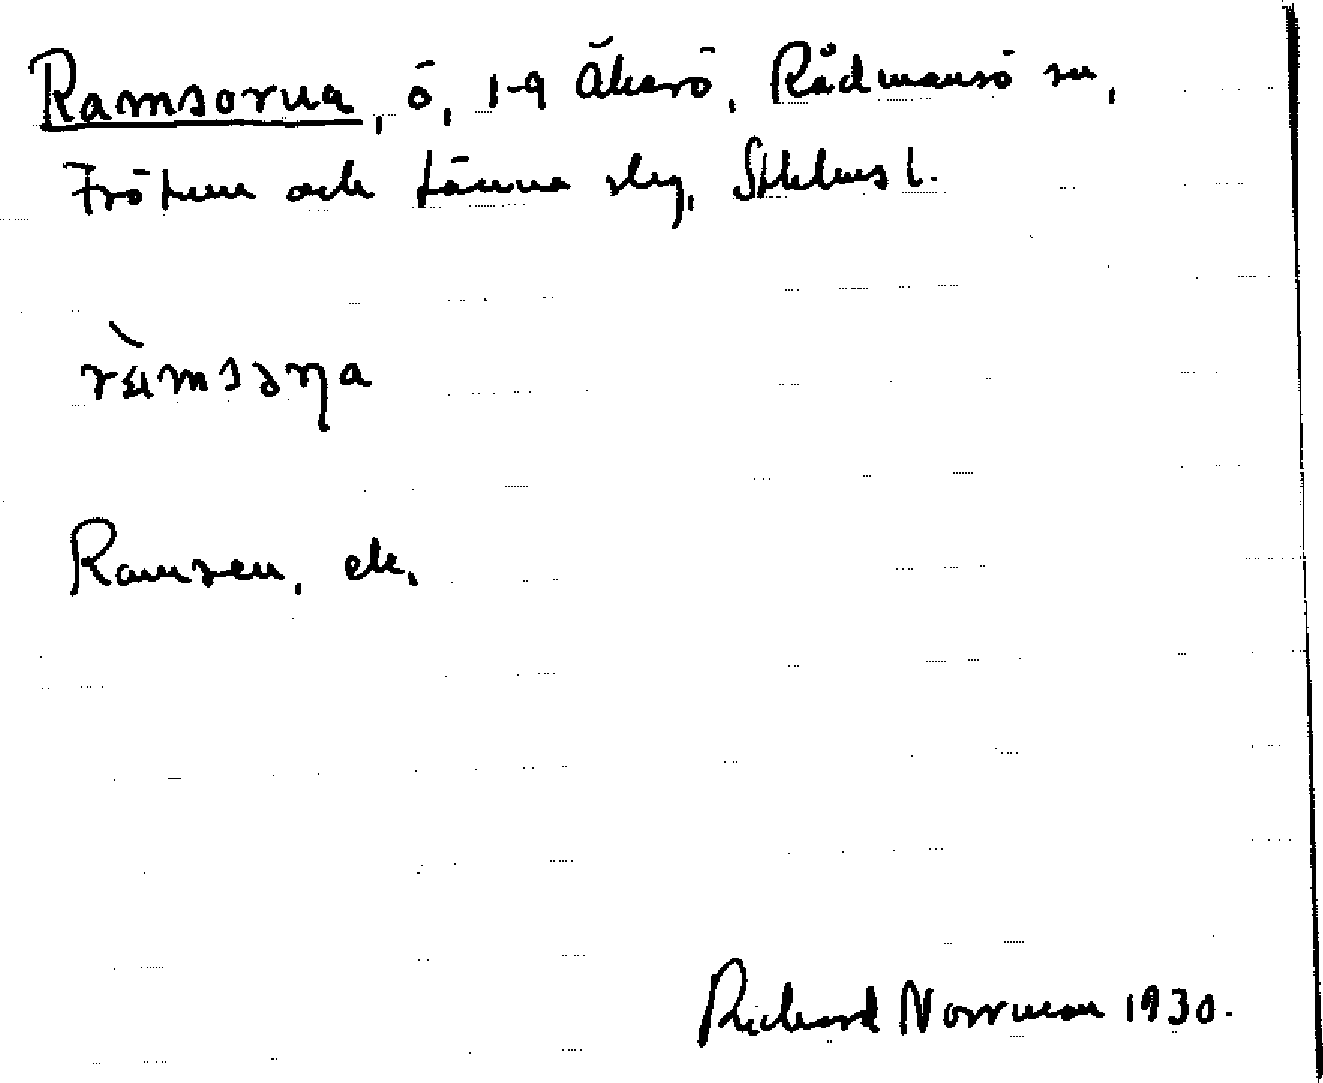 Ramsorna, ö, 1-9 Åkerö, Rådmansö sn,
Frötuna och Länna skg, Sthlms l.
Ramsen, ek.
Richard Norrman 1930.